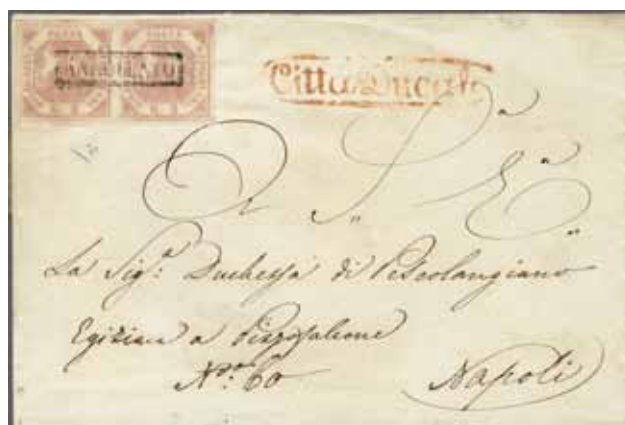 ANNULLATO
Città Ducale
A S. E.
La Sig.ª Duchessa di Pescolangiano
Egiziaca a Pizzofalcone
N.º 60
Napoli